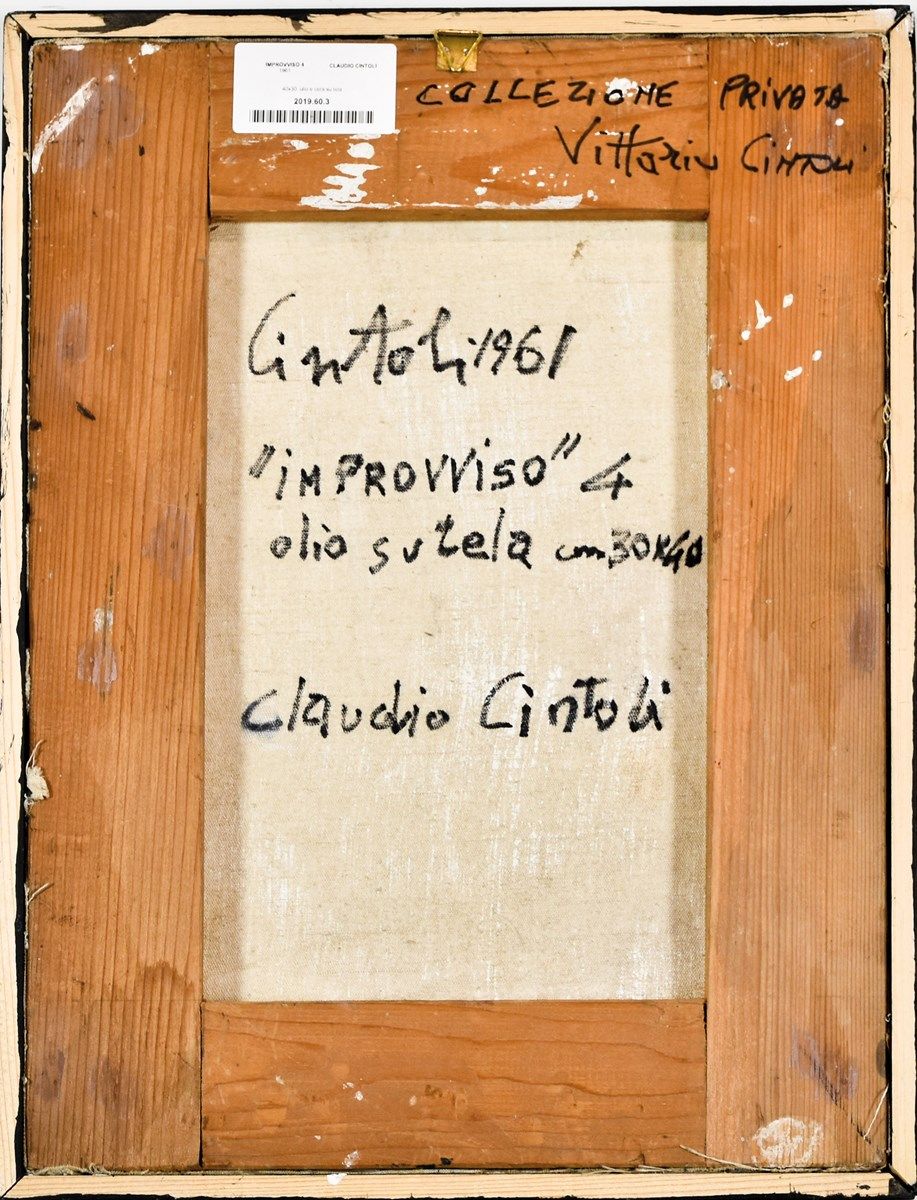 IMPROVVISO 4 CLAUDIO CINTOLI
1961
2019.60.3
COLLEZIONE PRIVATA
Vittorio CINTOLI
Cintoli 1961
"iMPROVViSO" 4
olio su tela cm 30x40
Claudio Cintoli